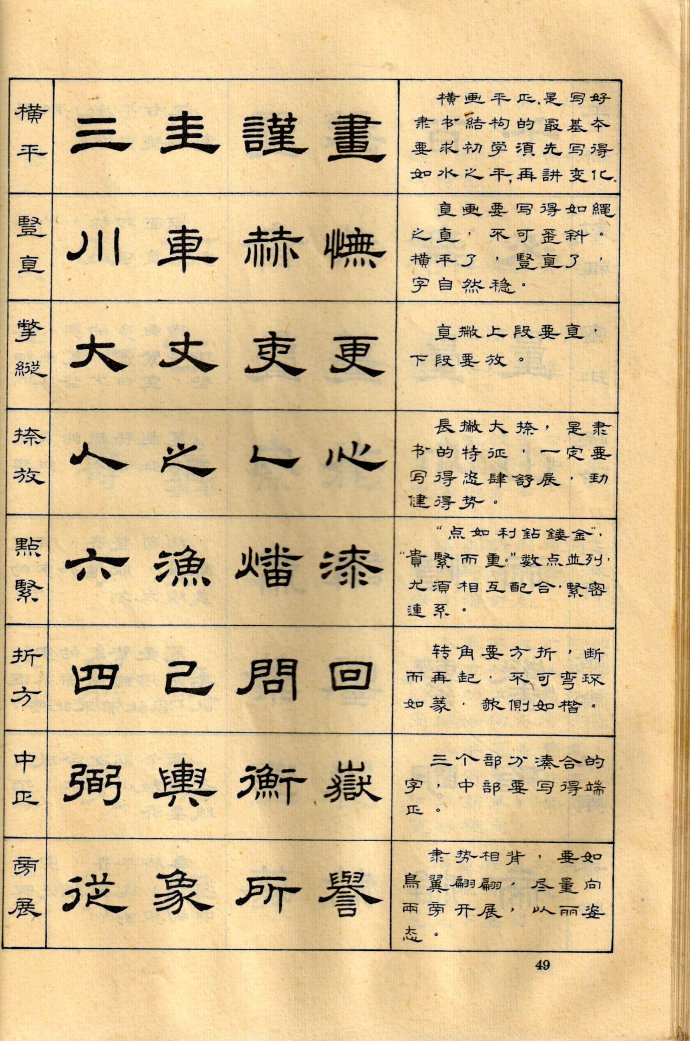 横平
三 圭 謹 畫
横画平正,是写好
隶书结构的最基本
要求初学須先写得
如水之平,再讲变化.
豎直
川 車 赫 憮
直画要写得如繩
之直,不可歪斜。
横平了,豎直了,
字自然稳。
撇縱
大 丈 吏 更
直撇上段要直,
下段要放。
捺放
人 之 心
長撇大捺,是隶
书的特征,一定要
写得恣肆舒展,劲
健得势。
點緊
六 漁 燔 漆
“点如利鉆鏤金”,
“貴緊而重。”数点並列,
尤須相互配合,緊密
連系。
折方
四 己 問 回
转角要方折,断
而再起,不可弯环
如篆,敧側如楷。
中正
弼 輿 衡 嶽
三个部分湊合的
字,中部要写得端
正。
旁展
從 象 所 譽
隶势相背,要如
鳥翼翩翩,尽量向
兩旁开展,以丽姿
态。
49